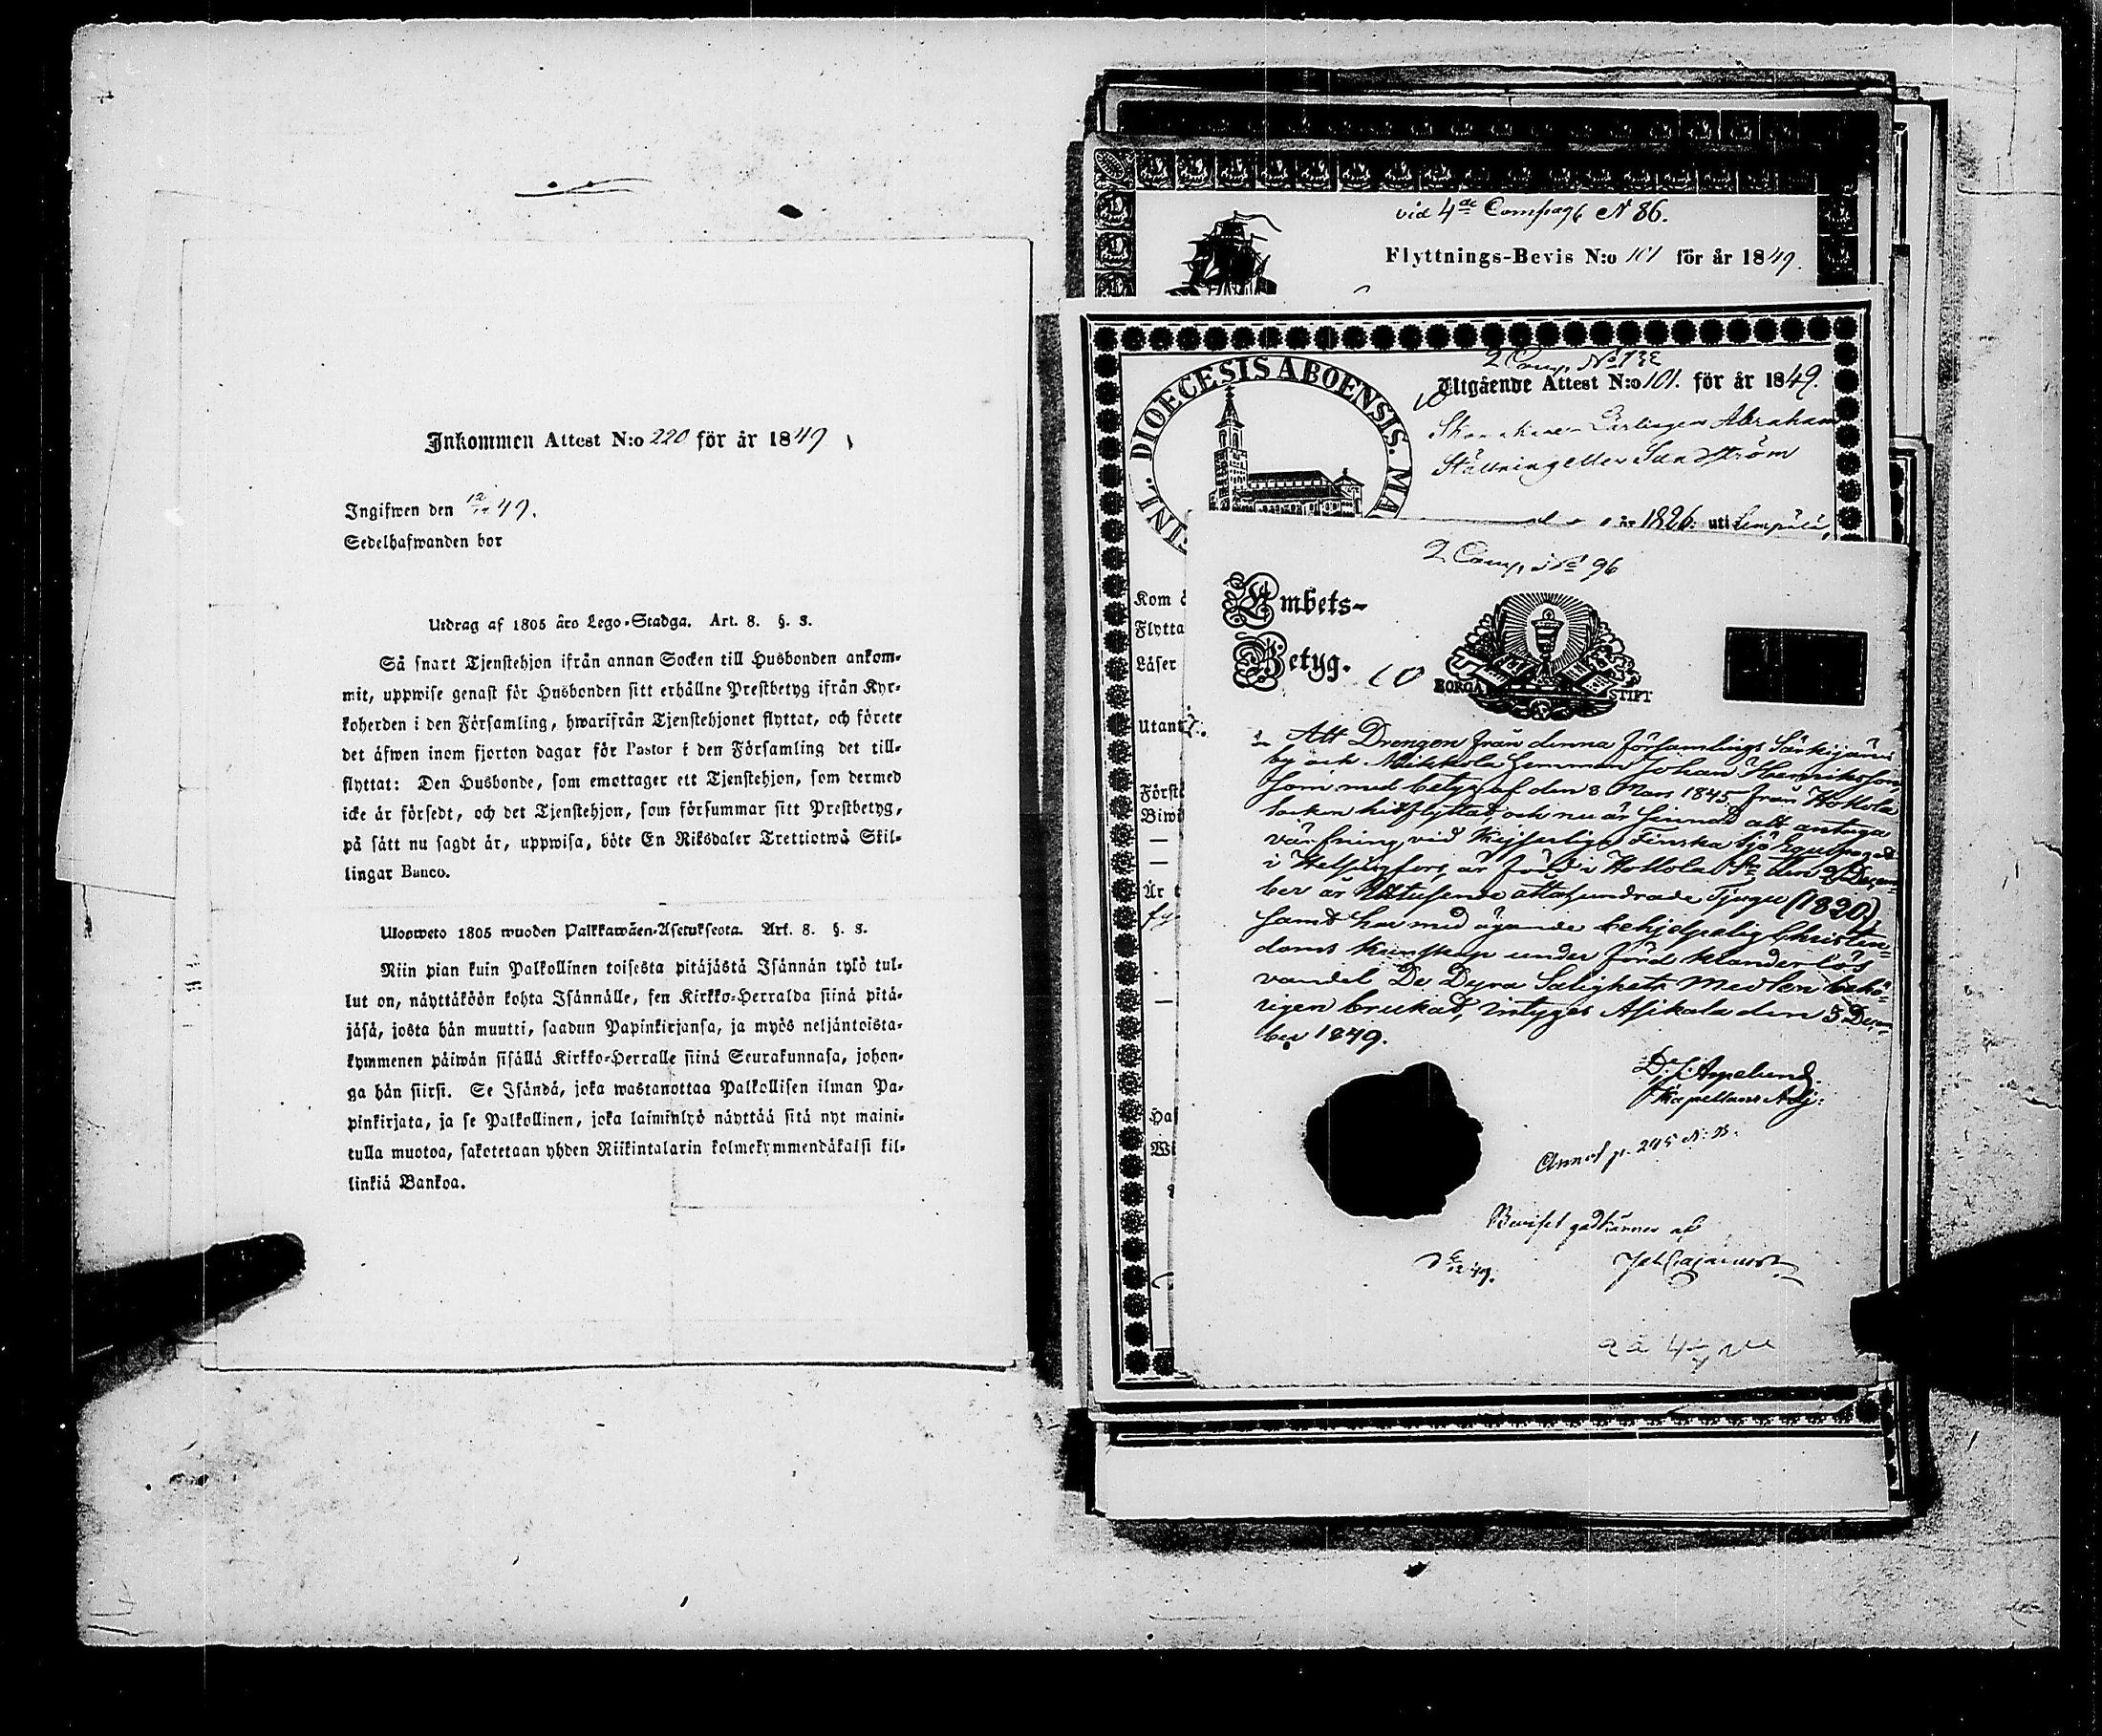 Inkommen Attest N:o 220 för år 1849
Ingifwen den 12/12 49.
Sedelhafwanden bor
Utdrag af 1805 års Lego-Stadga. Art. 8. §. 3.
Så snart Tjenstehjon ifrån annan Socken till Husbonden ankom-
mit, uppwise genast för Husbonden sitt erhållne Prestbetyg ifrån Kyr-
koherden i den Församling, hwarifrån Tjenstehjonet flyttat, och förete
det äfwen inom fjorton dagar för Pastor i den Församling det till-
flyttat: Den Husbonde, som emottager ett Tjenstehjon, som dermed
icke är försedt, och det Tjenstehjon, som försummar sitt Prestbetyg,
på sätt nu sagdt är, uppwisa, böte En Riksdaler Trettiotwå Skil-
lingar Banco.
Ulosweto 1805 wuoden Palkkawäen-Asetuksesta. Art. 8. §. 3.
Niin pian kuin Palkollinen toisesta pitäjästä Isännän tykö tul-
lut on, näyttäköön kohta Isännälle, sen Kirkko-Herralda siinä pitä-
jäsä, josta hän muutti, saadun Papinkirjansa, ja myös neljäntoista-
kymmenen päiwän sisällä Kirkko-Herralle siinä Seurakunnasa, johon-
ga hän siirsi. Se Isändä, joka wastanottaa Palkollisen ilman Pa-
pinkirjata, ja se Palkollinen, joka laiminlyö näyttää sitä nyt maini-
tulla muotoa, sakotetaan yhden Riikintalarin kolmekymmendäkaksi kil-
linkiä Bankoa.
vid 4de Comp N 86.
Flyttnings-Bevis N:o 101 för år 1849.
2 Comp. No 132
Utgående Attest N:o 101. för år 1849.
DIOECESIS ABOENSIS.
Abraham
Ställning eller Sandström
år 1826. uti Lempälä,
Kom
Flytta
Läser
Utant
Först
Biwi
Är
2 Comp. No 96
Embets-
Betyg. 10
BORGÅ STIFT
Att Drengen från denna församlings Särkijärvi
by och Mikkola hemman Johan Henriksson,
som med betyg af den 8 Mars 1845 från Hollola
Socken hitflyttat, och nu är sinnad att antaga
värfning vid Kejserliga Finska Sjö Equipaget
i Helsingfors, är född i Hollola Sn den 2 Decem-
ber år Ettusende åttahundrade Tjugu (1820)
samt har med ägande behjelpelig Christen-
doms kunskap under förd klanderlös
vandel De Dyra Salighets Medlen behö-
rigen brukat, intygas Asikala den 5 Decem-
ber 1849.
Kapellans Adj:
Annot p. 245
Beviset godkännes af